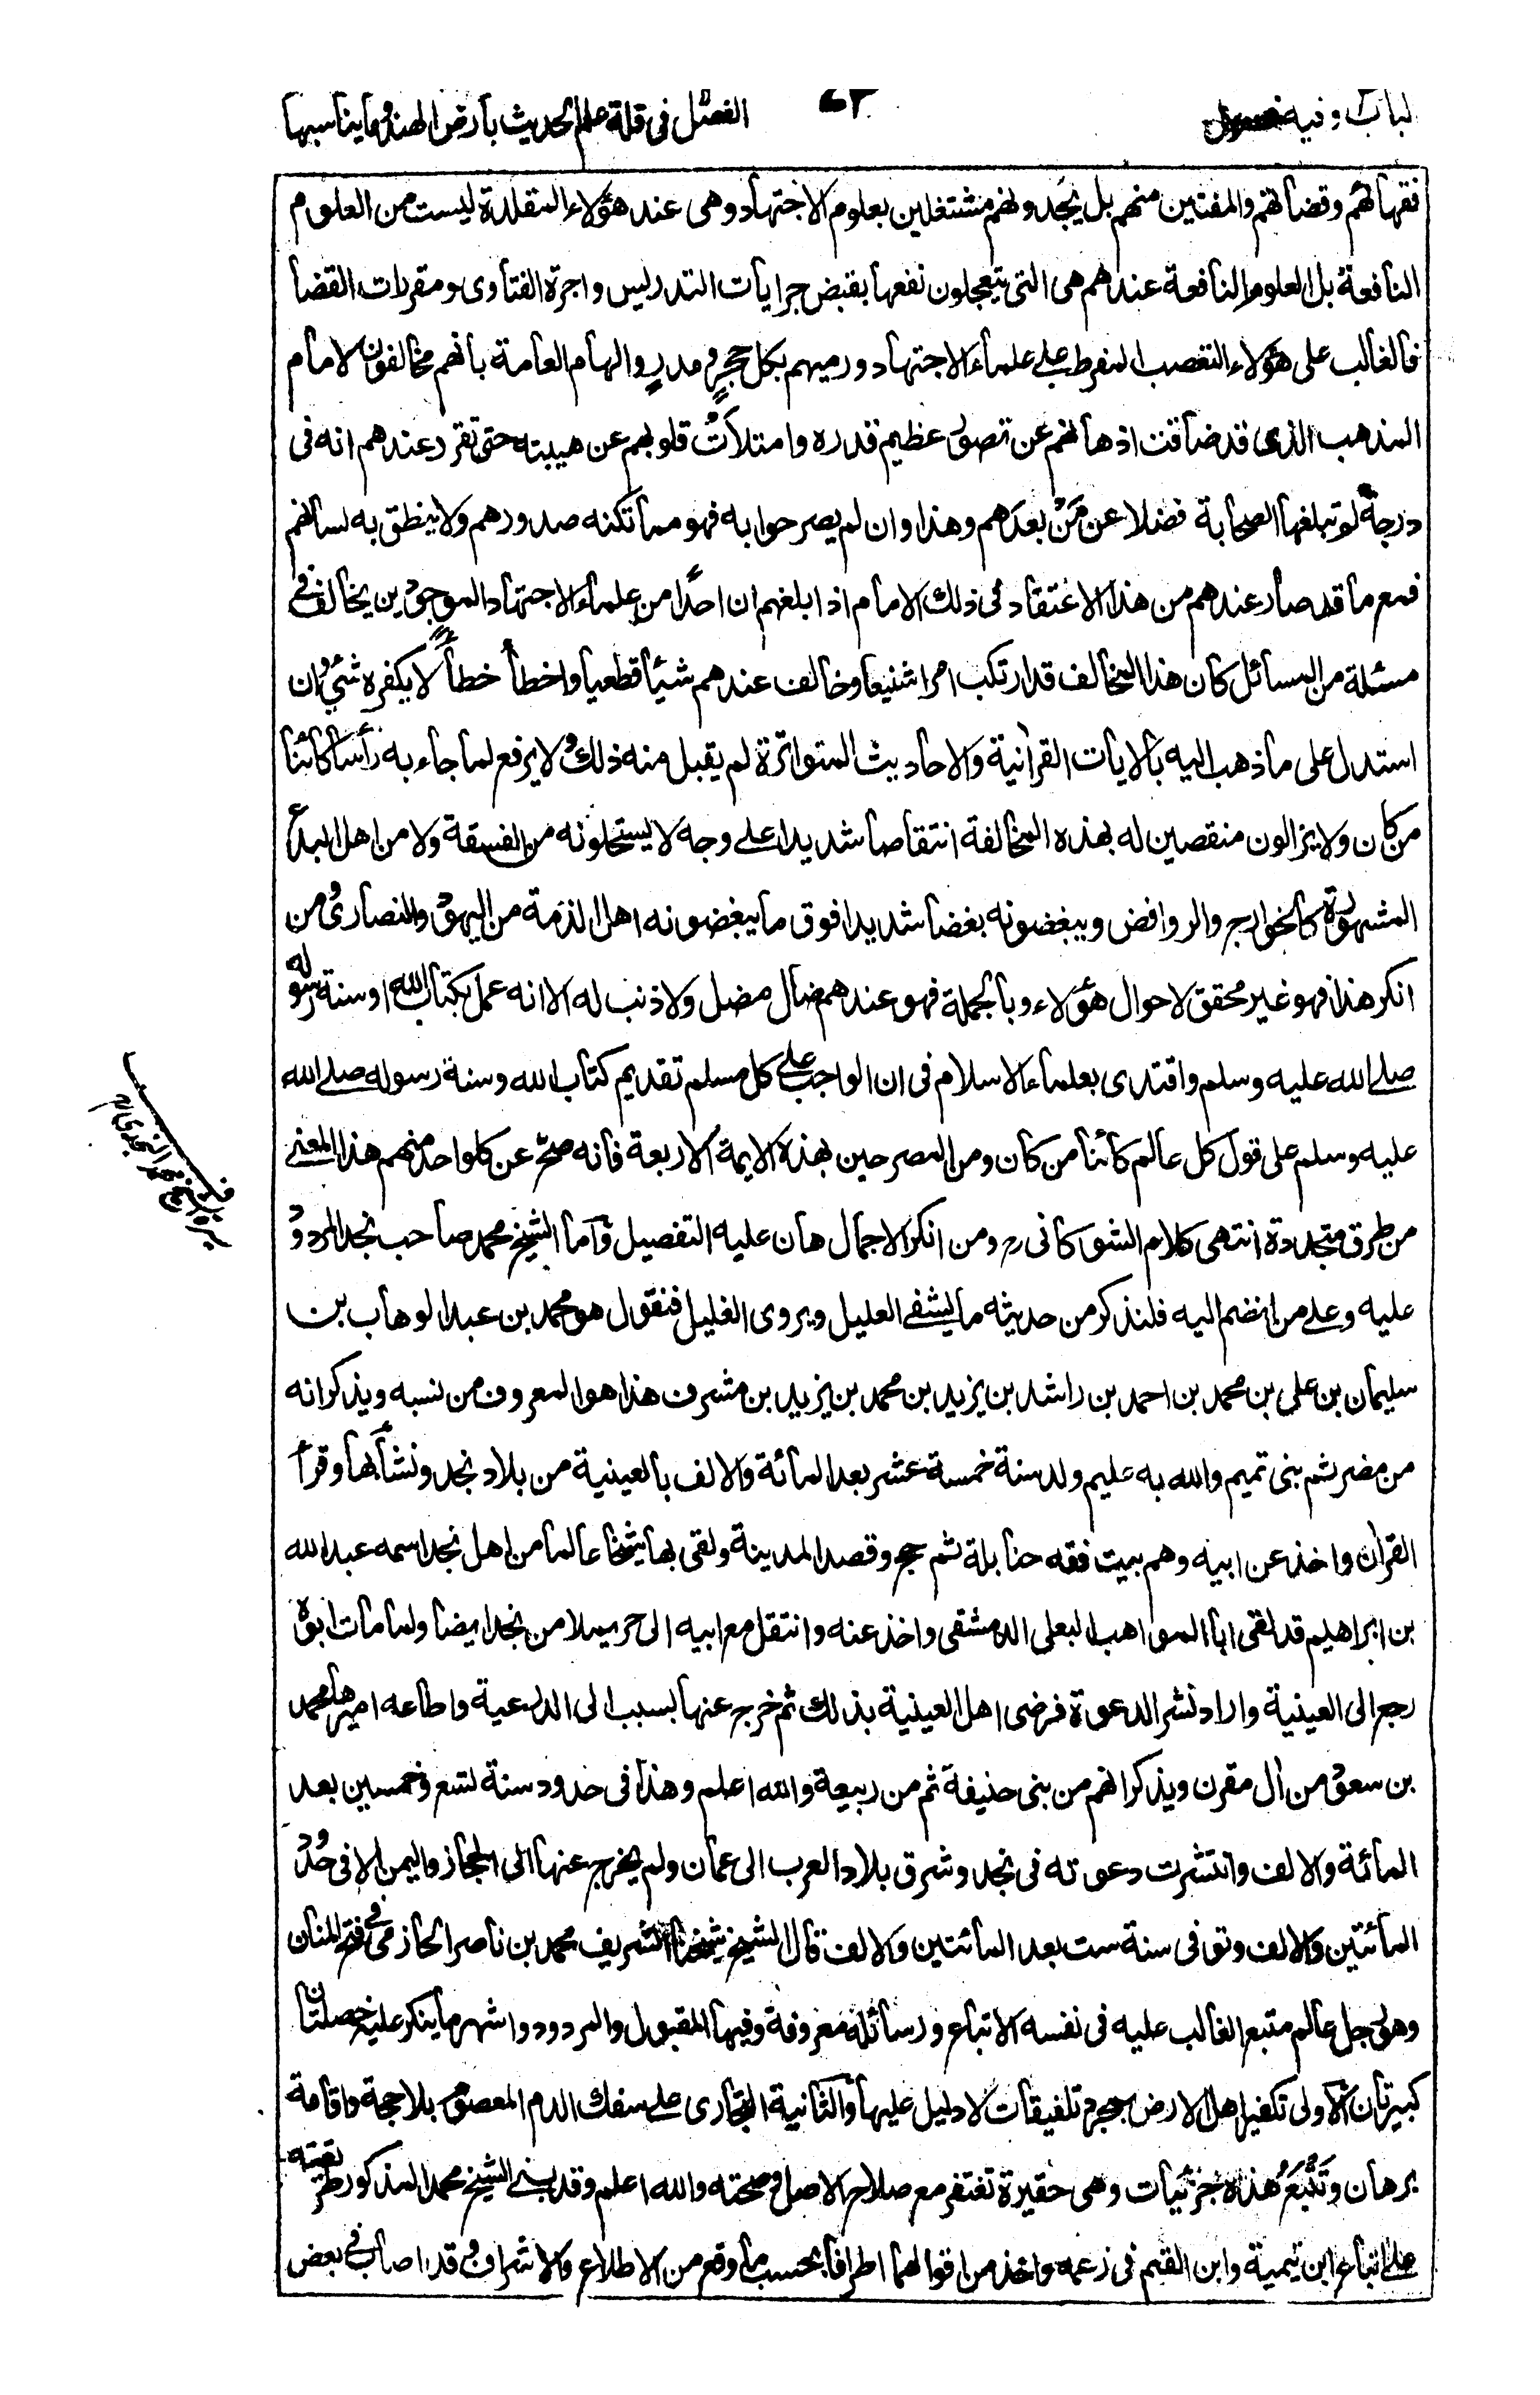 لباب وفيه فصول
٦٢
الفصل فى قلة علم الحديث بارض الهند وما يناسبها
فقهائهم وقضاتهم والمفتين منهم بل يجدونهم مشتغلين بعلوم الاجتهاد وهى عند هؤلاء المتقلدة ليست من العلوم
النافعة بل العلوم النافعة عندهم هى التى يتعجلون نفعها بقبض جرايات التدريس واجرة الفتاوى ومقررات القضا
فالغالب على هؤلاء التعصب المفرط على علماء الاجتهاد ورميهم بكل حجر ومدر والهام العامة بانهم مخالفون لامام
المذهب الذى قد ضاقت اذهانهم عن تصور عظيم قدره وامتلأت قلوبهم عن هيبته حتى تقرر عندهم انه فى
درجة لو تبلغها الصحابة فضلا عن مَنْ بعدهم وهذا وان لم يصرحوا به فهو مما تكنه صدورهم ولا ينطق به لسانهم
فمع ما قد صار عندهم من هذا الاعتقاد فى ذلك الامام اذا بلغهم ان احدًا من علماء الاجتهاد الموجودين يخالفه فى
مسئلة من المسائل كان هذا المخالف قد ارتكب امرا شنيعا وخالف عندهم شيئا قطعيا واخطأ خطأً لا يكفره شئ وان
استدل على ما ذهب اليه بالايات القرآنية والاحاديث المتواترة لم يقبل منه ذلك ولا يرفع لما جاء به رأسا كائنا
من كان ولا يزالون منقصين له بهذه المخالفة انتقاصا شديدا على وجه لا يستحلونه من الفسقة ولا من اهل البدع
المشهورة كالخوارج والروافض ويبغضونه بغضا شديدا فوق ما يبغضونه اهل الذمة من اليهود والنصارى ومن
انكر هذا فهو غير محقق لاحوال هؤلاء وبالجملة فهو عندهم ضال مضل ولا ذنب له الا انه عمل بكتاب الله او سنة رسوله
صلى الله عليه وسلم واقتدى بعلماء الاسلام فى ان الواجب على كل مسلم تقديم كتاب الله وسنة رسوله صلى الله
عليه وسلم على قول كل عالم كائنا من كان ومن المصرحين بهذه الايمة الاربعة فانه صح عن كل واحد منهم هذا المعنى
من طرق متعددة انتهى كلام الشوكانى رح ومن انكر الاجمال هان عليه التفصيل وآما الشيخ محمد صاحب نجد المردود
عليه وعلى من انضم اليه فلنذكر من حديثه ما يشفى العليل ويروى الغليل فنقول هو محمد بن عبد الوهاب بن
سليمان بن على بن محمد بن احمد بن راشد بن يزيد بن محمد بن يزيد بن مشرف هذا هو المعروف من نسبه ويذكر انه
من مضر ثم بنى تميم والله به عليم ولد سنة خمسة عشر بعد المائة والالف بالعينية من بلاد نجد ونشأ بها وقرأ
القرآن واخذ عن ابيه وهم بيت فقه حنابلة ثم حج وقصد المدينة ولقى بها شيخا عالما من اهل نجد اسمه عبد الله
بن ابراهيم قد لقى ابا المواهب البعلى الدمشقى واخذ عنه وانتقل مع ابيه الى حريملا من نجد ايضا ولما مات ابوه
رجع الى العينية واراد نشر الدعوة فرضى اهل العينية بذلك ثم خرج عنها بسبب الى الدرعية واطاعه اميرها محمد
بن سعود من آل مقرن ويذكر انهم من بنى حنيفة ثم من ربيعة والله اعلم وهذا فى حدود سنة تسع وخمسين بعد
المائة والالف وانتشرت دعوته فى نجد وشرق بلاد العرب الى عمان ولم يخرج عنها الى الحجاز واليمن الا فى حدود
المائتين والالف وتوفى سنة ست بعد المائتين والالف قال الشيخ شيخنا الشريف محمد بن ناصر الحازمى فى فتح المنان
وهو رجل عالم متبع الغالب عليه فى نفسه الاتباع ورسائله معروفة وفيها المقبول والمردود واشهر ما ينكر عليه خصلتان
كبيرتان الاولى تكفير اهل الارض بمجرد تلفيقات لا دليل عليها والثانية التجارى على سفك الدم المعصوم بلا حجة واقامة
برهان وتَتَبُّعُ هذه جزئيات وهى حقيرة تغتفر مع صلاح الاصل وصحته والله اعلم وقد بنى الشيخ محمد المذكور طريقته
على اتباع ابن تيمية وابن القيم فى زعمه واخذ من اقوالهما اطرافا بحسب ما وقع من الاطلاع والاشراف وقد اصاب فى بعض